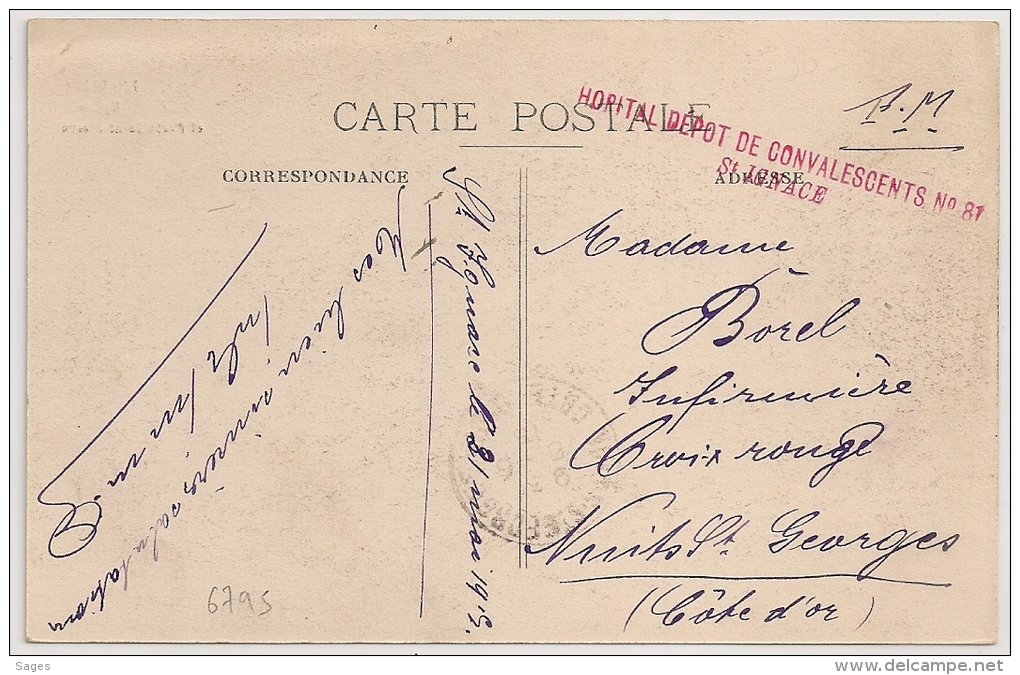 CARTE POSTALE
HOPITAL DÉPOT DE CONVALESCENTS Nº 87
St IGNACE
F.M
CORRESPONDANCE
ADRESSE
St Ignace le 21 mai 1915.
Mes salutations
Madame
Borel
Infirmière
Croix rouge
Nuits St. Georges
(Côte d'or)
6795
Sages
www.delcampe.net